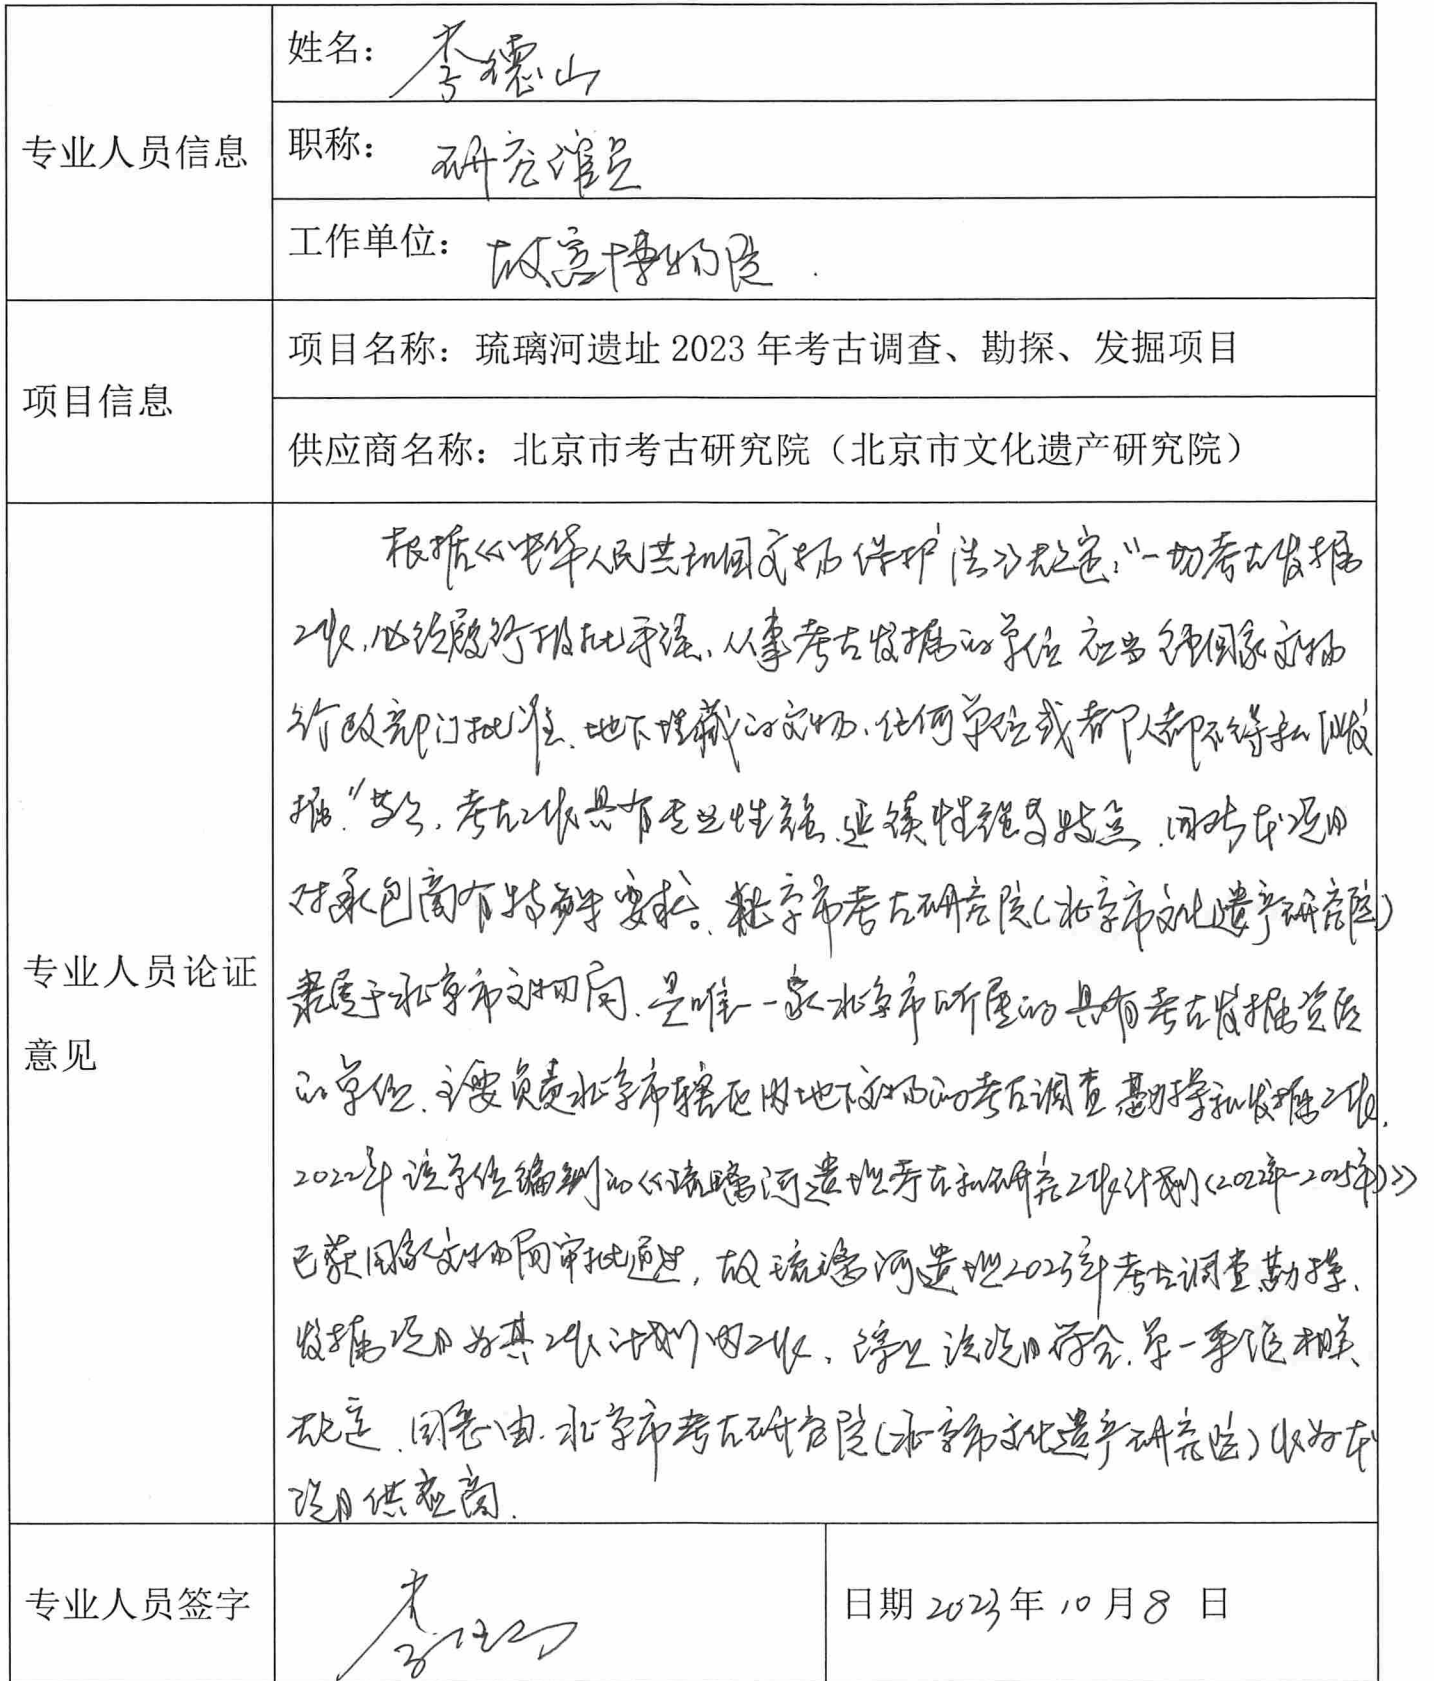 专业人员信息
姓名：李德山
职称：研究馆员
工作单位：故宫博物院
项目信息
项目名称：琉璃河遗址 2023 年考古调查、勘探、发掘项目
供应商名称：北京市考古研究院（北京市文化遗产研究院）
专业人员论证
意见
根据《中华人民共和国文物保护法》规定，“一切考古发掘
工作，必须履行报批手续、从事考古发掘的单位应当经国家文物
行政部门批准、地下埋藏的文物，任何单位或者个人都不得私自发
掘.”等，考古工作具有专业性强、延续性强等特点，同时本项目
对承包商有特殊要求。北京市考古研究院（北京市文化遗产研究院）
隶属于北京市文物局，是唯一一家北京市所属的具有考古发掘资质
的单位，主要负责北京市辖区内地下文物的考古调查勘探和发掘工作，
2022年该单位编制的《琉璃河遗址考古和研究工作计划（2022年-2025年）》
已获国家文物局审批通过，故琉璃河遗址2023年考古调查勘探、
发掘项目为其工作计划内工作，该项目符合单一来源相关
规定，同意由北京市考古研究院（北京市文化遗产研究院）作为本
项目供应商.
专业人员签字
李德山
日期 2023 年 10 月 8 日